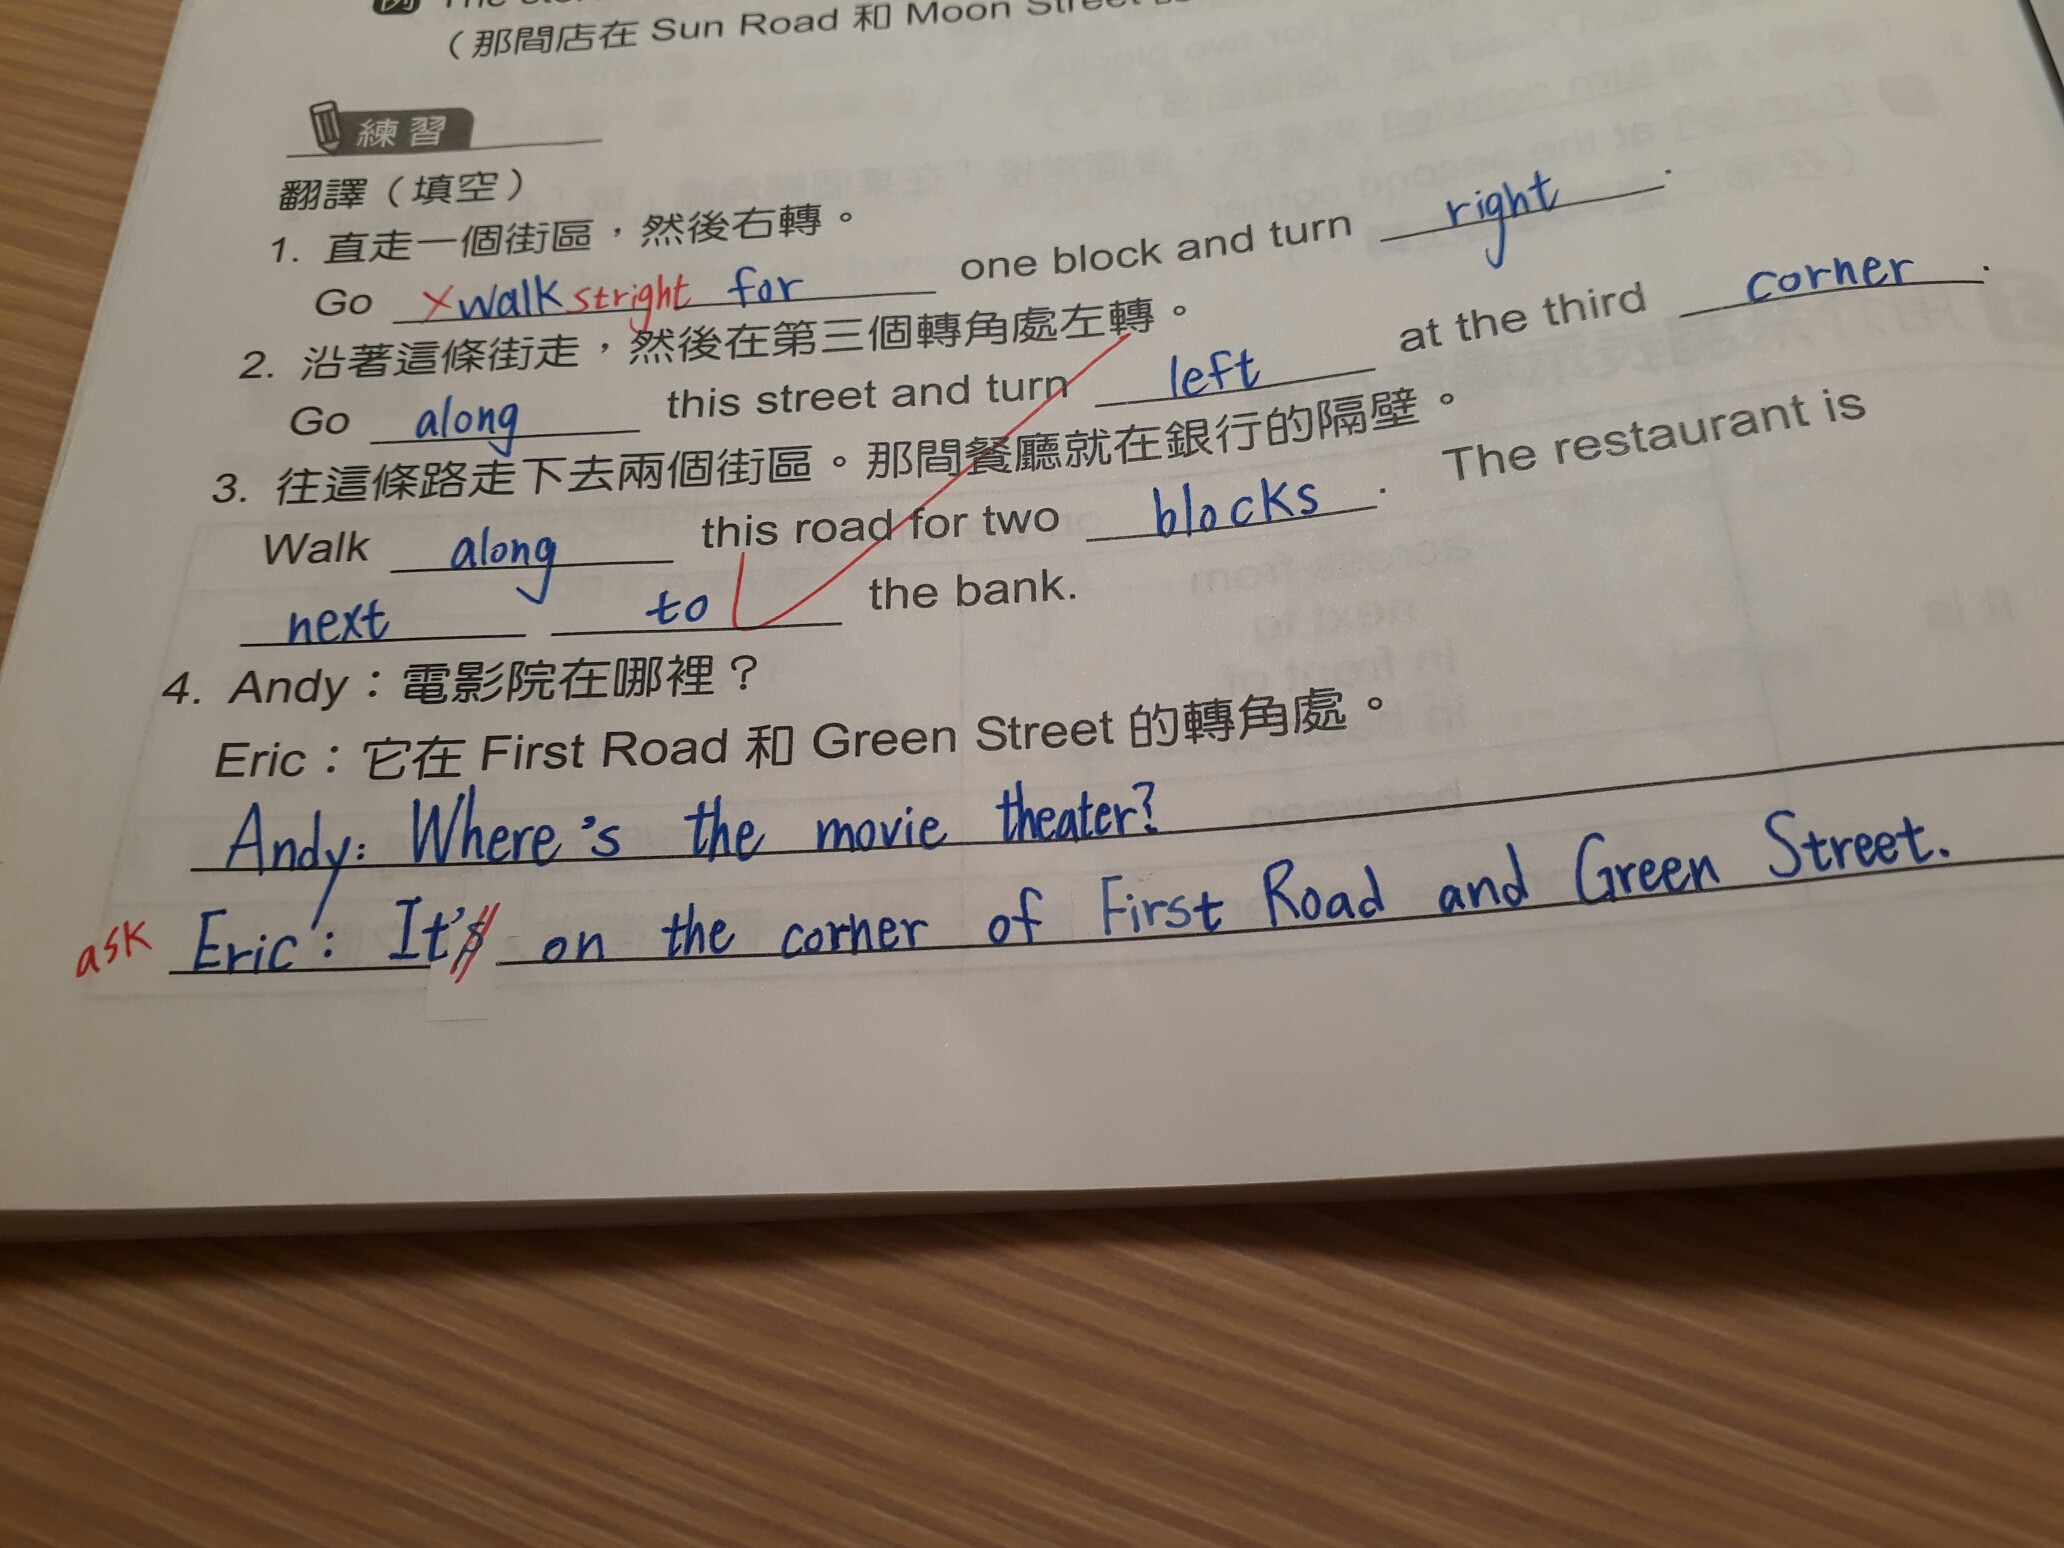 例 The
（那間店在 Sun Road 和 Moon Street
練習
翻譯（填空）
1. 直走一個街區，然後右轉。
Go ×walk stright for one block and turn right.
2. 沿著這條街走，然後在第三個轉角處左轉。
Go along this street and turn left at the third corner.
3. 往這條路走下去兩個街區。那間餐廳就在銀行的隔壁。
Walk along this road for two blocks. The restaurant is
next to the bank.
4. Andy：電影院在哪裡？
Eric：它在 First Road 和 Green Street 的轉角處。
Andy: Where's the movie theater?
ask Eric: It's on the corner of First Road and Green Street.